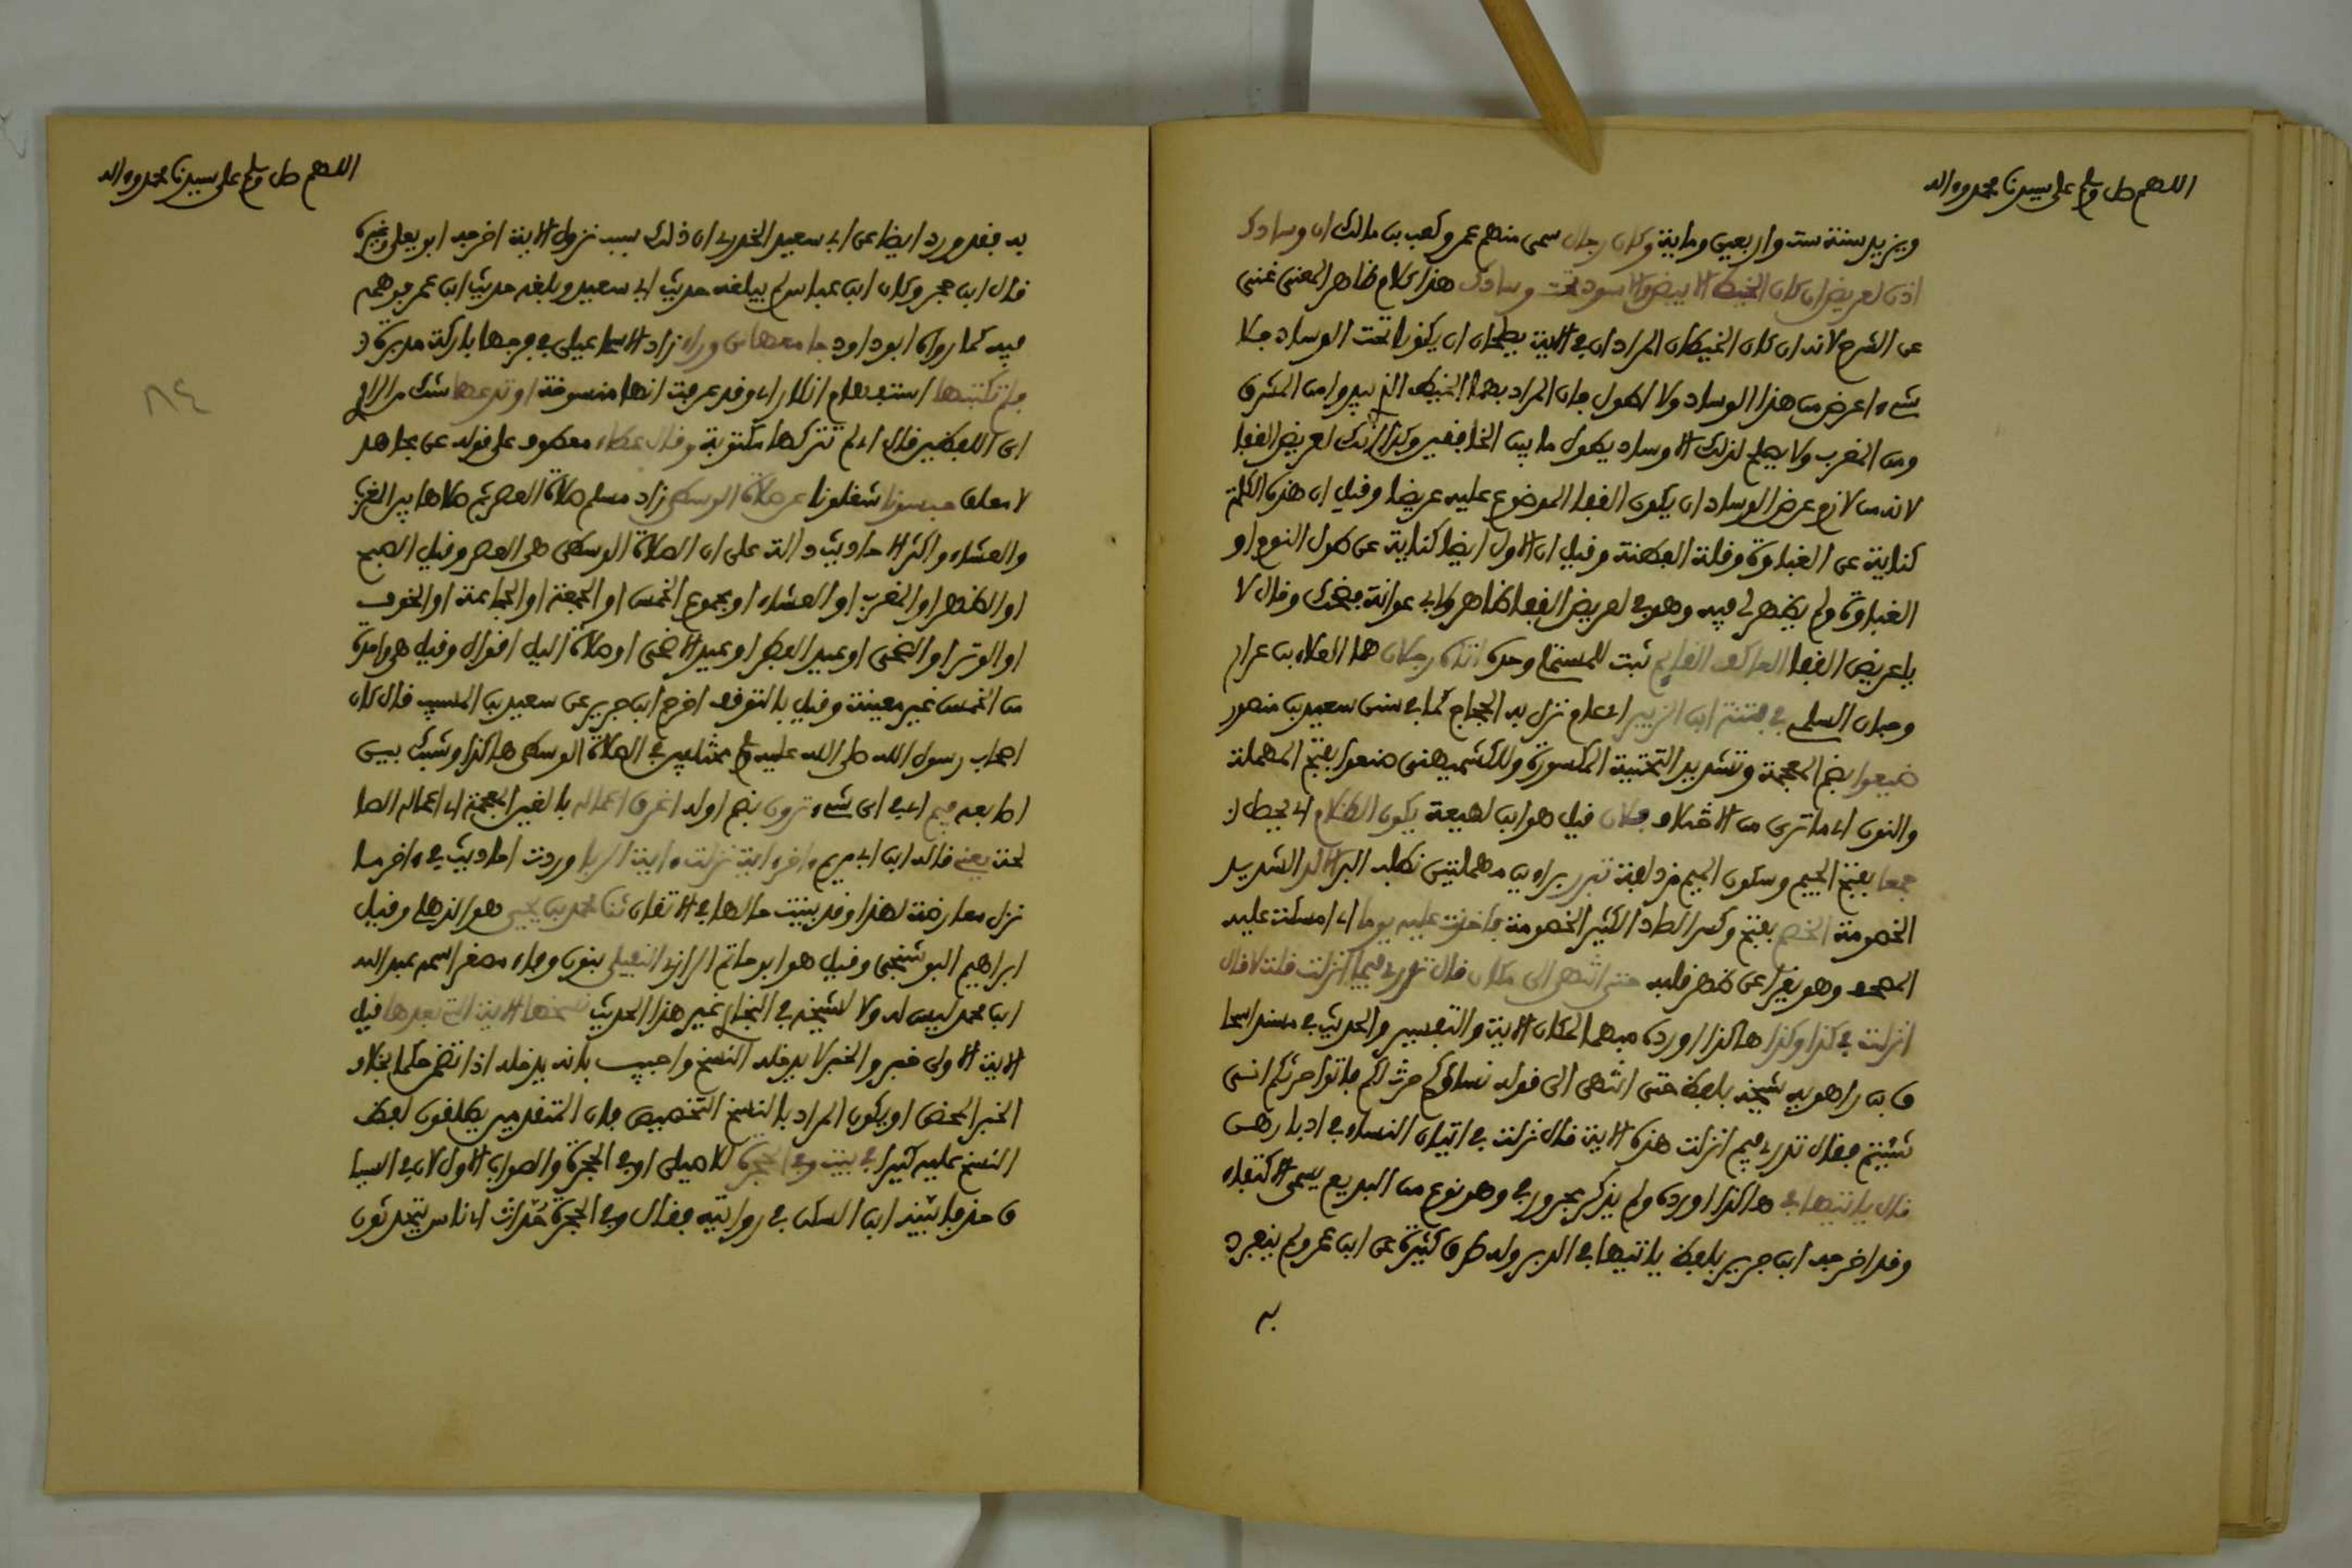 اللهم صل وسلم على سيدنا محمد وءاله
ويزيد سنة ست واربعين وماية وكان رجال سمى منهم عمر وكعب بن مالك ان وسادك
اذن لعريض ان كان الخيط الابيض والاسود تحت وسادك هذا كلام ظاهر المعنى غني
عن الشرح لانه ان كان الخيطان المرادان في الاية يصلحان ان يكونا تحت الوساد فلا
شيء اعرض من هذا الوساد ولا اطول فان المراد بهما الخيط الذي يبدوا من المشرق
ومن المغرب ولا يصلح لذلك الا وساد يطول ما بين الخافقين وكذا انك لعريض القفا
لانه من لازم عرض الوساد ان يكون القفا الموضوع عليه عريضا وقيل ان هذه الكلمة
كناية عن الغباوة وقلة الفطنة وقيل ان الاول ايضا كناية عن طول النوم او
الغباوة ولم يظهر لي فيه وهو في لعريض القفا ظاهر ولابي عوانة فضحك وقال لا
يا عريض القفا العاكف القايم ثبت للمستملي وحده اتاه رجلان هما العلاء بن عرار
وحبان السلمي في فتنة ابن الزبير اي عام نزل به الحجاج كما في سنن سعيد بن منصور
ضيعوا بضم المعجمة وتشديد التحتية المكسورة وللكشميهني صنعوا بفتح المهملة
والنون اي ما ترى من الاختلاف فلان قيل هو ابن لهيعة يكون الظلام اي يحصل ان
جمعا بفتح الجيم وسكون الميم مزدلفة تبرر براءين مهملتين تطلب البر الالد الشديد
الخصومة الخصم بفتح وكسر الصاد الكثير الخصومة فاخذت عليه يوما اي امسكت عليه
المصحف وهو يقرا عن ظهر قلبه حتى انتهى الى مكان قال تدري فيما انزلت قلت لا قال
انزلت في كذا وكذا هاكذا اورده مبهما لمكان الاية والتفسير والحديث في مسند اسحا
ق بن راهويه شيخه بلفظ حتى انتهى الى قوله نساؤكم حرث لكم فاتوا حرثكم انى
شيتم فقال تدري فيم انزلت هذه الاية قال نزلت في اتيان النساء في ادبارهن
قال ياتيها في هاكذا اورده ولم يذكر مجرور في وهو نوع من البديع يسمى الاكتفاء
وقد اخرجه ابن جرير بلفظ ياتيها في الدبر وله طرق كثيرة عن ابن عمر ولم ينفرد
به
اللهم صل وسلم على سيدنا محمد وءاله
به فقد ورد ايضا عن ابي سعيد الخدري ان ذلك سبب نزول الاية اخرجه ابو يعلى وغيره
قال ابن حجر وكان ابن عباس لم يبلغه حديث ابي سعيد وبلغه حديث ابن عمر فوهمه
فيه كما رواه ابو داود جامعها من وراء زاد الاسماعيلي في فرجها باركة مدبرة
فلم تكتبها استفهام انكار اي وقد عرفت انها منسوخة او تدعها شك من الراوي
اي اللفظين قال اي لم تتركها مكتوبة وقال عطاء معطوف على قوله عن مجاهد
لا معلق حبسونا شغلونا عن صلاة الوسطى زاد مسلم صلاة العصر ثم صلاها بين المغرب
والعشاء واكثر الاحاديث دالة على ان الصلاة الوسطى هي العصر وقيل الصبح
او الظهر او المغرب او العشاء او مجموع الخمس او الجمعة او الجماعة او الخوف
او الوتر او الضحى او عيد الفطر او عيد الاضحى او صلاة اليل اقوال وقيل هي واحدة
من الخمس غير معينة وقيل بالتوقف اخرج ابن جرير عن سعيد بن المسيب قال كان
اصحاب رسول الله صلى الله عليه وسلم مختلفين في الصلاة الوسطى هاكذا وشبك بين
اصابعه فيم اي في اي شيء ترون بضم اوله اغرق اعماله بالغين المعجمة اي اعماله الصا
لحة يعني قاله ابن ابي مريم ءاخر ءاية نزلت ءاية الربا وردت احاديث في ءاخر ما
نزل معارضة لهذا وقد بينت حالها في الاتقان ثنا محمد بن يحيى هو الذهلي وقيل
ابراهيم البوشنجي وقيل هو ابو حاتم الرازي النفيلي بنون وفاء مصغر اسمه عبد الله
ابن محمد ليس له ولا لشيخه في البخاري غير هذا الحديث نسختها الاية التي بعدها قيل
الاية الاولى خبر والخبر لا يدخله النسخ واجيب بانه يدخله اذا تضمن حكما بخلاف
الخبر المحض او يكون المراد بالنسخ التخصيص فان المتقدمين يطلقون لفظ
النسخ عليه كثيرا في بيت وفي الحجرة للاصيلي او في الحجرة والصواب الاول لان في السيا
ق حذفا بينه ابن السكن في روايته فقال وفي الحجرة حداث اي ناس يتحدثون
٨٤